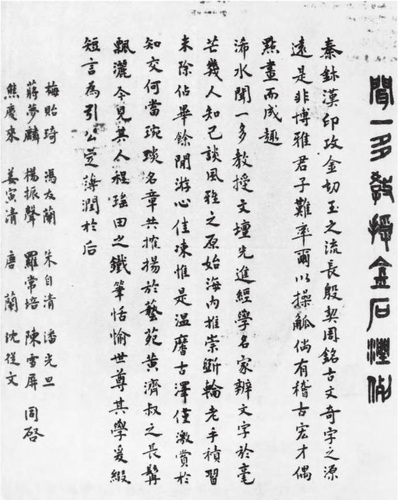 聞一多教授金石潤例
秦鉥漢印攻金切玉之流長殷契周銘古文奇字之源
遠是非博雅君子難率爾以操觚倘有稽古宏才偶
點畫而成趣
浠水聞一多教授文壇先進經學名家辨文字於毫
芒幾人知己談風雅之原始海內推崇斲輪老手積習
未除佔畢餘閒游心佳凍惟是溫黁古澤僅激賞於
知交何當琬琰名章共榷揚於藝苑黃濟叔之長髯
飄灑今見其人程瑤田之鐵筆恬愉世尊其學爰綴
短言為引公定薄潤于后
梅貽琦 馮友蘭 朱自清 潘光旦
蔣夢麟 楊振聲 羅常培 陳雪屏 同啓
熊慶來 姜寅清 唐蘭 沈從文